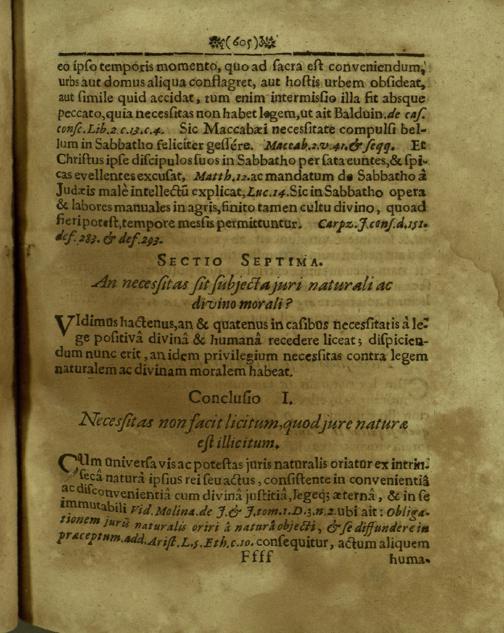 (605)
eo ipso temporis momento, quo ad sacra est conveniendum,
urbs aut domus aliqua conflagret, aut hostis urbem obsideat,
aut simile quid accidat, tum enim intermissio illa fit absque
peccato, quia necessitas non habet legem, ut ait Balduin. de cas.
consc. Lib. 2. c. 13. c. 4. Sic Maccabæi necessitate compulsi bel-
lum in Sabbatho feliciter gessêre. Maccab. 2. v. 41. & seqq. Et
Christus ipse discipulos suos in Sabbatho per sata euntes, & spi-
cas evellentes excusat, Matth. 12. ac mandatum de Sabbatho â
Judæis malè intellectû explicat, Luc. 14. Sic in Sabbatho opera
& labores manuales in agris, finito tamen cultu divino, quoad
fieri potest, tempore messis permittuntur. Carpz. J. cons. d. 151.
def. 283. & def. 293.
SECTIO SEPTIMA.
An necessitas sit subjecta juri naturali ac
divino morali?
VIdimus hactenus, an & quatenus in casibus necessitatis â le-
ge positivâ divinâ & humanâ recedere liceat; dispicien-
dum nunc erit, an idem privilegium necessitas contra legem
naturalem ac divinam moralem habeat.
Conclusio I.
Necessitas non facit licitum, quod jure naturæ
est illicitum.
CUm universa vis ac potestas juris naturalis oriatur ex intrin-
secâ naturâ ipsius rei seu actus, consistente in convenientiâ
ac disconvenientiâ cum divinâ justitiâ, legeq; æternâ, & in se
immutabili Vid. Molina. de J. & J. tom. 1. D. 3. n. 2. ubi ait: Obliga-
tionem juris naturalis oriri â naturâ objecti, & se diffundere in
præceptum. add. Arist. L. 5. Eth. c. 10. consequitur, actum aliquem
Ffff huma-